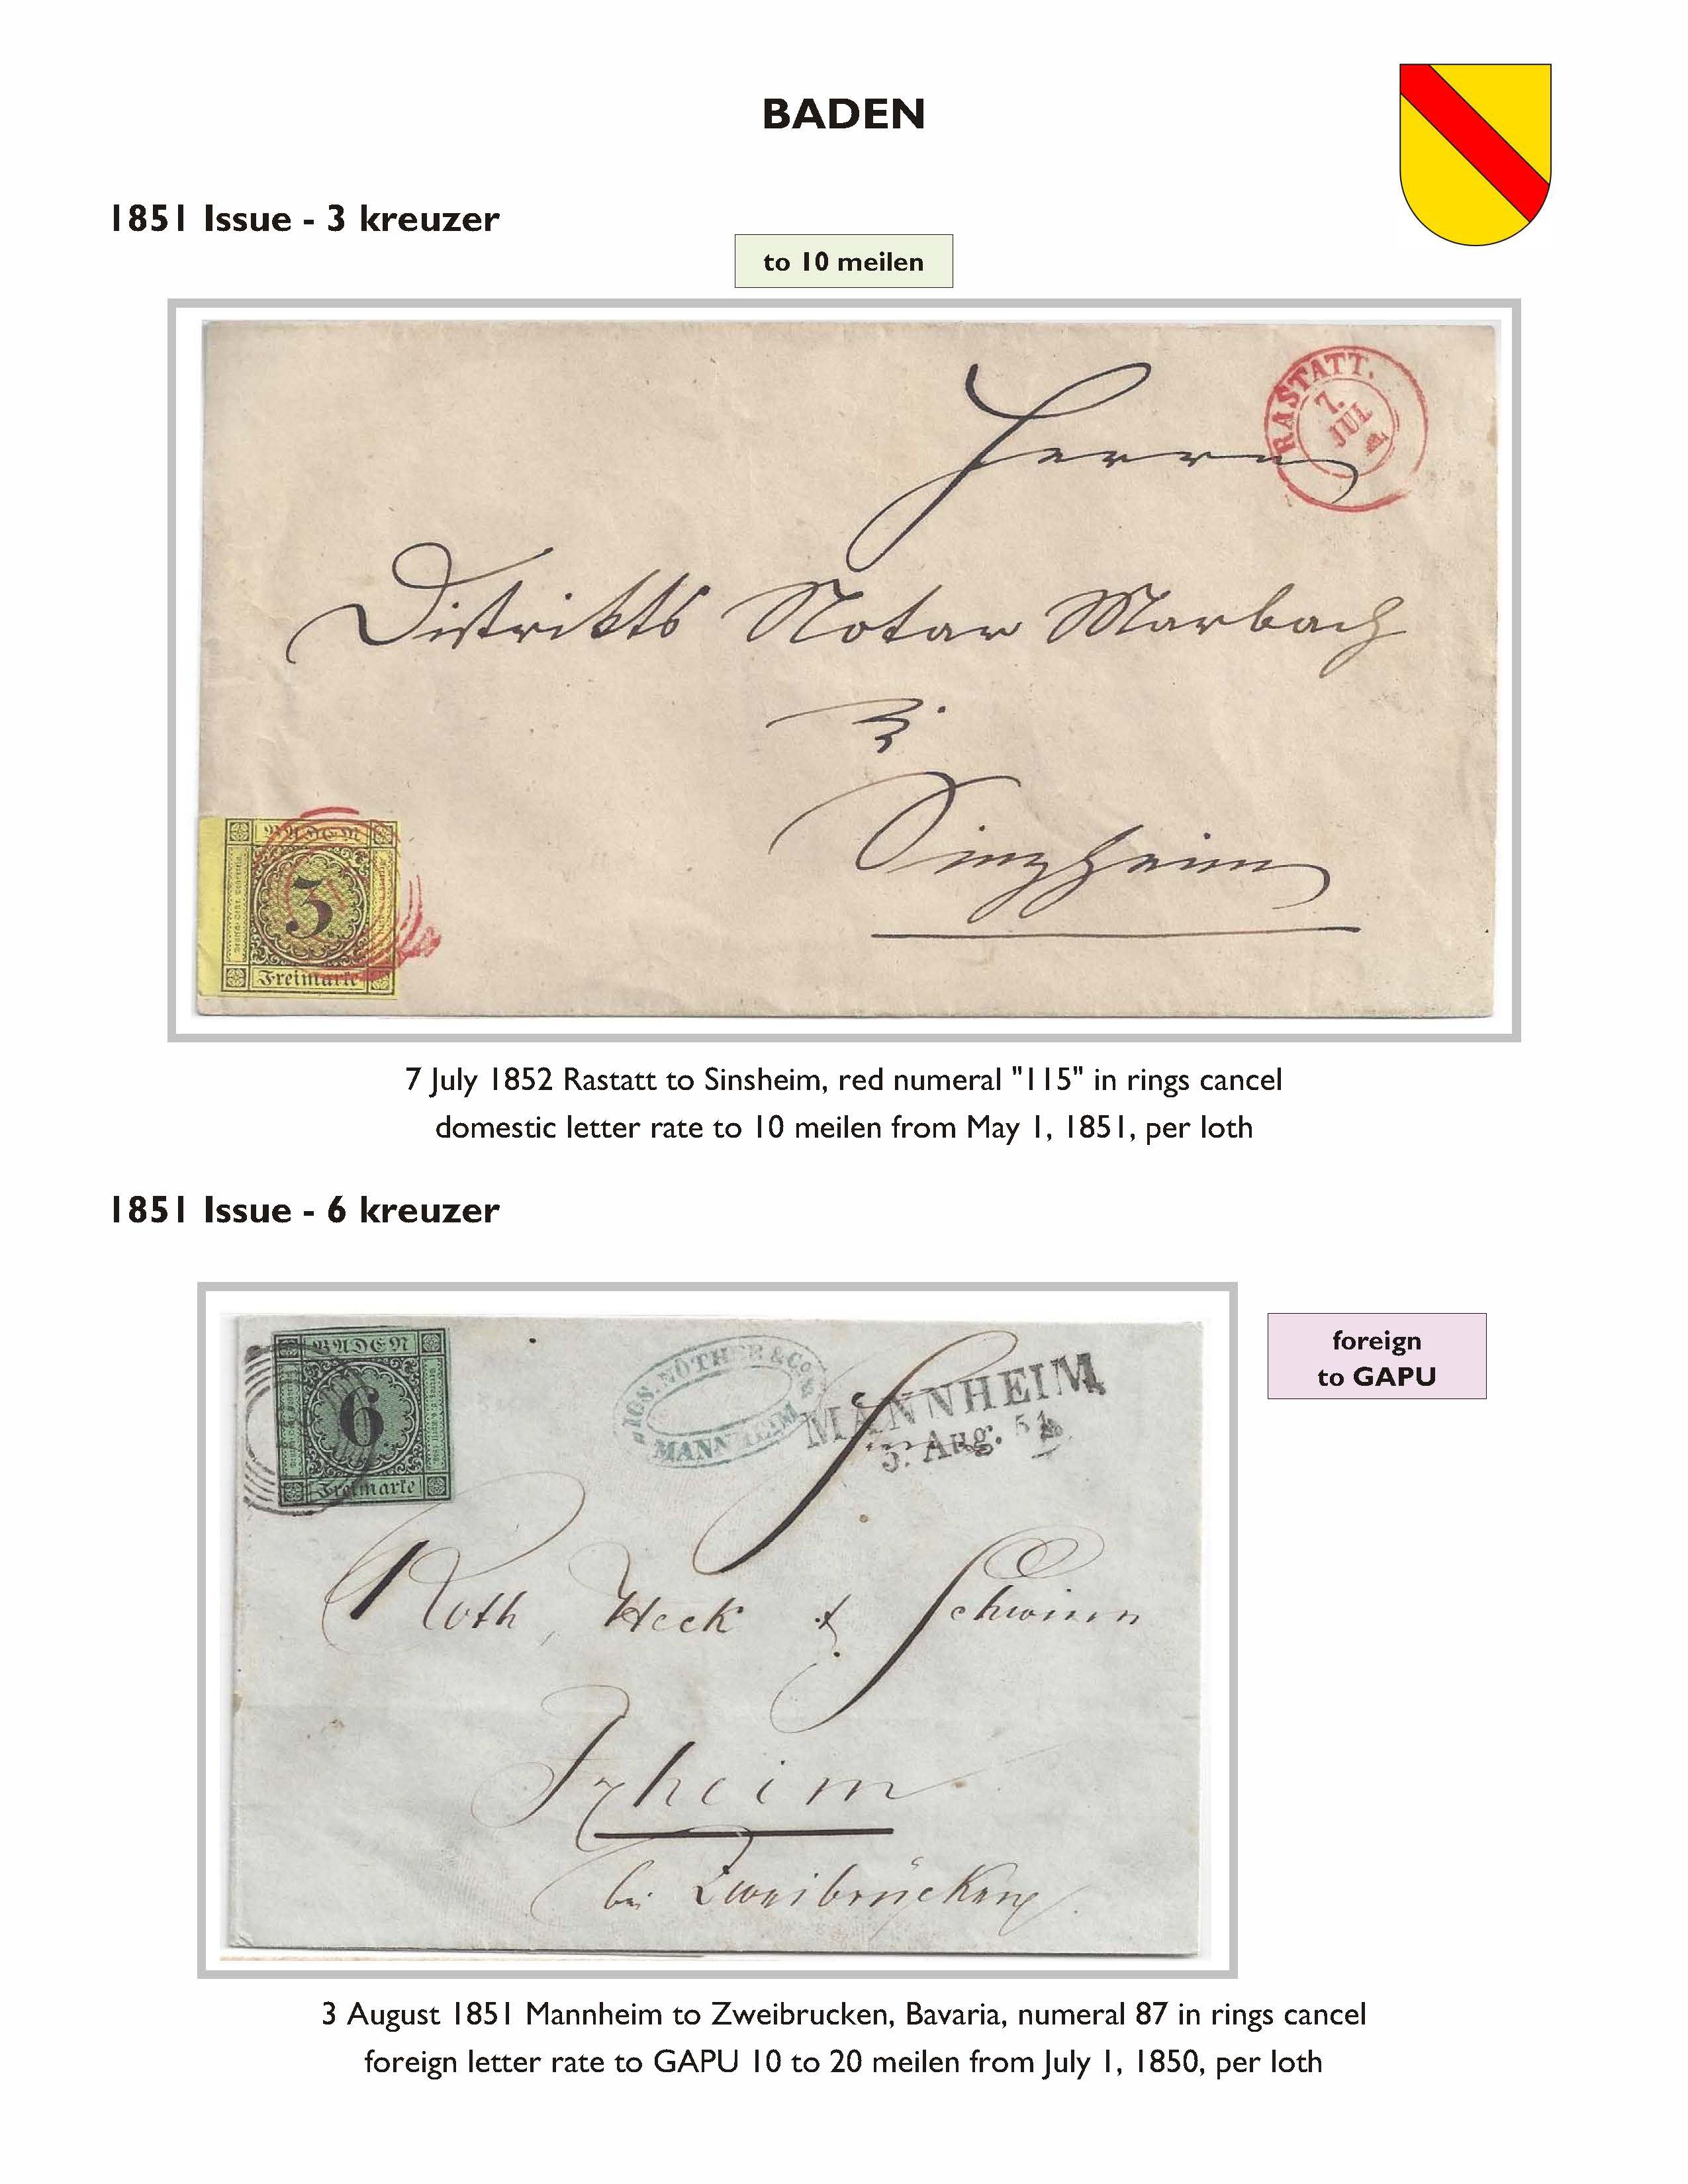 BADEN
1851 Issue - 3 kreuzer
to 10 meilen
RASTATT.
7.
JUL
Herrn
Distrikts Notar Marbach
Sinzheim
BADEN
3
Freimarke
7 July 1852 Rastatt to Sinsheim, red numeral "115" in rings cancel
domestic letter rate to 10 meilen from May 1, 1851, per loth
1851 Issue - 6 kreuzer
foreign
to GAPU
BADEN
6
Freimarke
IGS. NÖTHER & Co.
MANNHEIM
MANNHEIM
3. Aug. 51
Roth, Heck & Schwinn
Irheim
bei Zweibrücken
3 August 1851 Mannheim to Zweibrucken, Bavaria, numeral 87 in rings cancel
foreign letter rate to GAPU 10 to 20 meilen from July 1, 1850, per loth